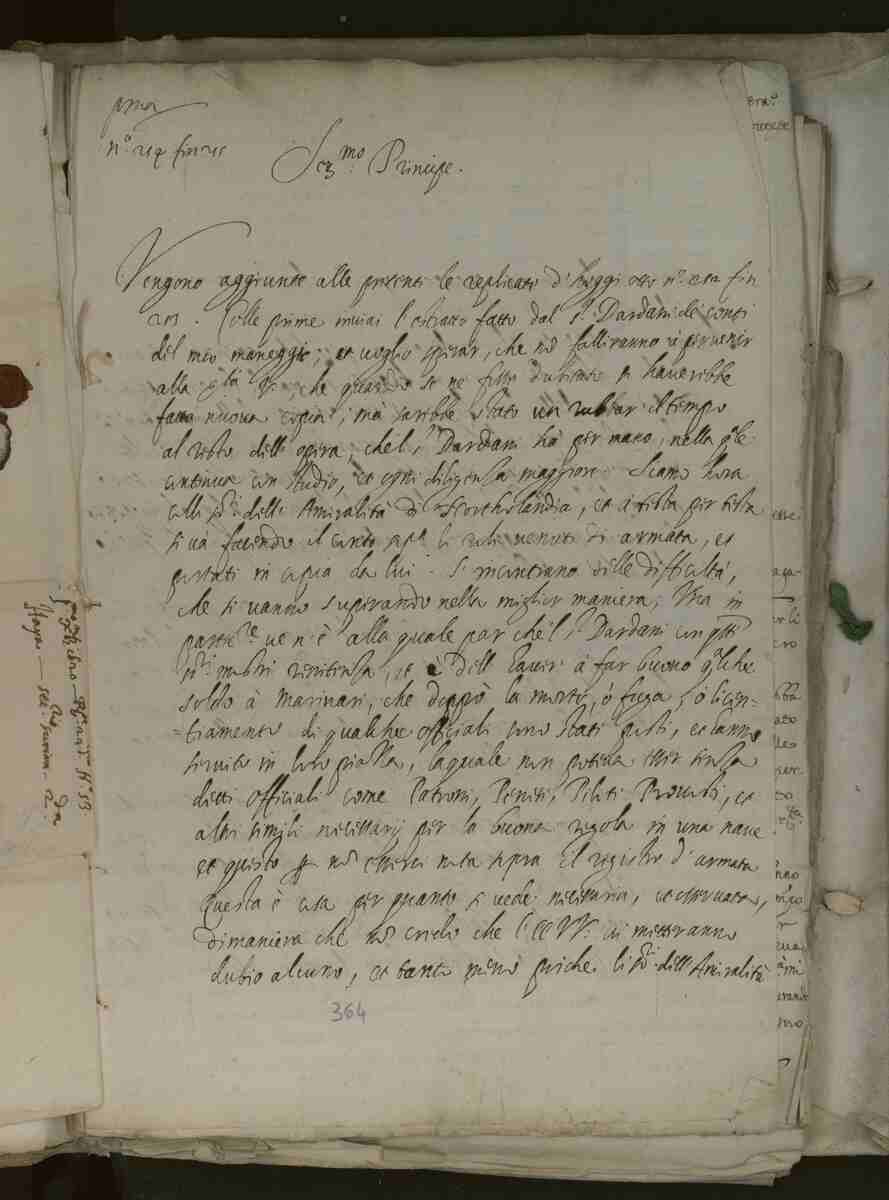 p.ma
n.º 214 fin 215
Ser.mo Principe.
Vengono aggiunte alle presenti le replicate d'hoggi otto n.º 212 fin
213. Colle prime inviai l'estratto fatto dal s.r Dardani de conti
del mio maneggio; et voglio sperar, che nõ falliranno à pervenir
alla che quando se ne fosse dubitato si haverebbe
fatto nuova copia; mà sarebbe stato un rubbar il tempo
al resto dell'opera, che'l s.r Dardani hà per mano, nella q.le
continua con studio, et ogni diligenza maggiore. Siamo hora
colli ss.ri dell'Amiralità di Northolandia, et à testa per testa
si và facendo il conto sop.a li roli venuti di armata, et
portati in copia da lui. S'incontrano delle difficoltà,
che si vanno superando nella miglior maniera; Una in
partic.re ve n'è alla quale par che'l s.r Dardani con
n.ri resistenza, et è dell'haver à far buono q.lche
soldo à Marinari, che doppò la morte, ò fuga, ò licen-
=tiamento di qualche officiali sono stati posti, et hanno
servito in loro piazza, laquale non poteva esser senza
detti officiali come Patroni, Penesi, Piloti Provisti, et
altri simili necessarij per la buona regola in una nave
et questo p nõ esserci nota sopra il registro d'armata
Questa è cosa per quanto si vede necessaria, et osservata,
dimaniera che nõ credo che l'EE VV. ci metteranno
dubio alcuno, et tanto meno poiche li ss.ri dell'Amiralità
364